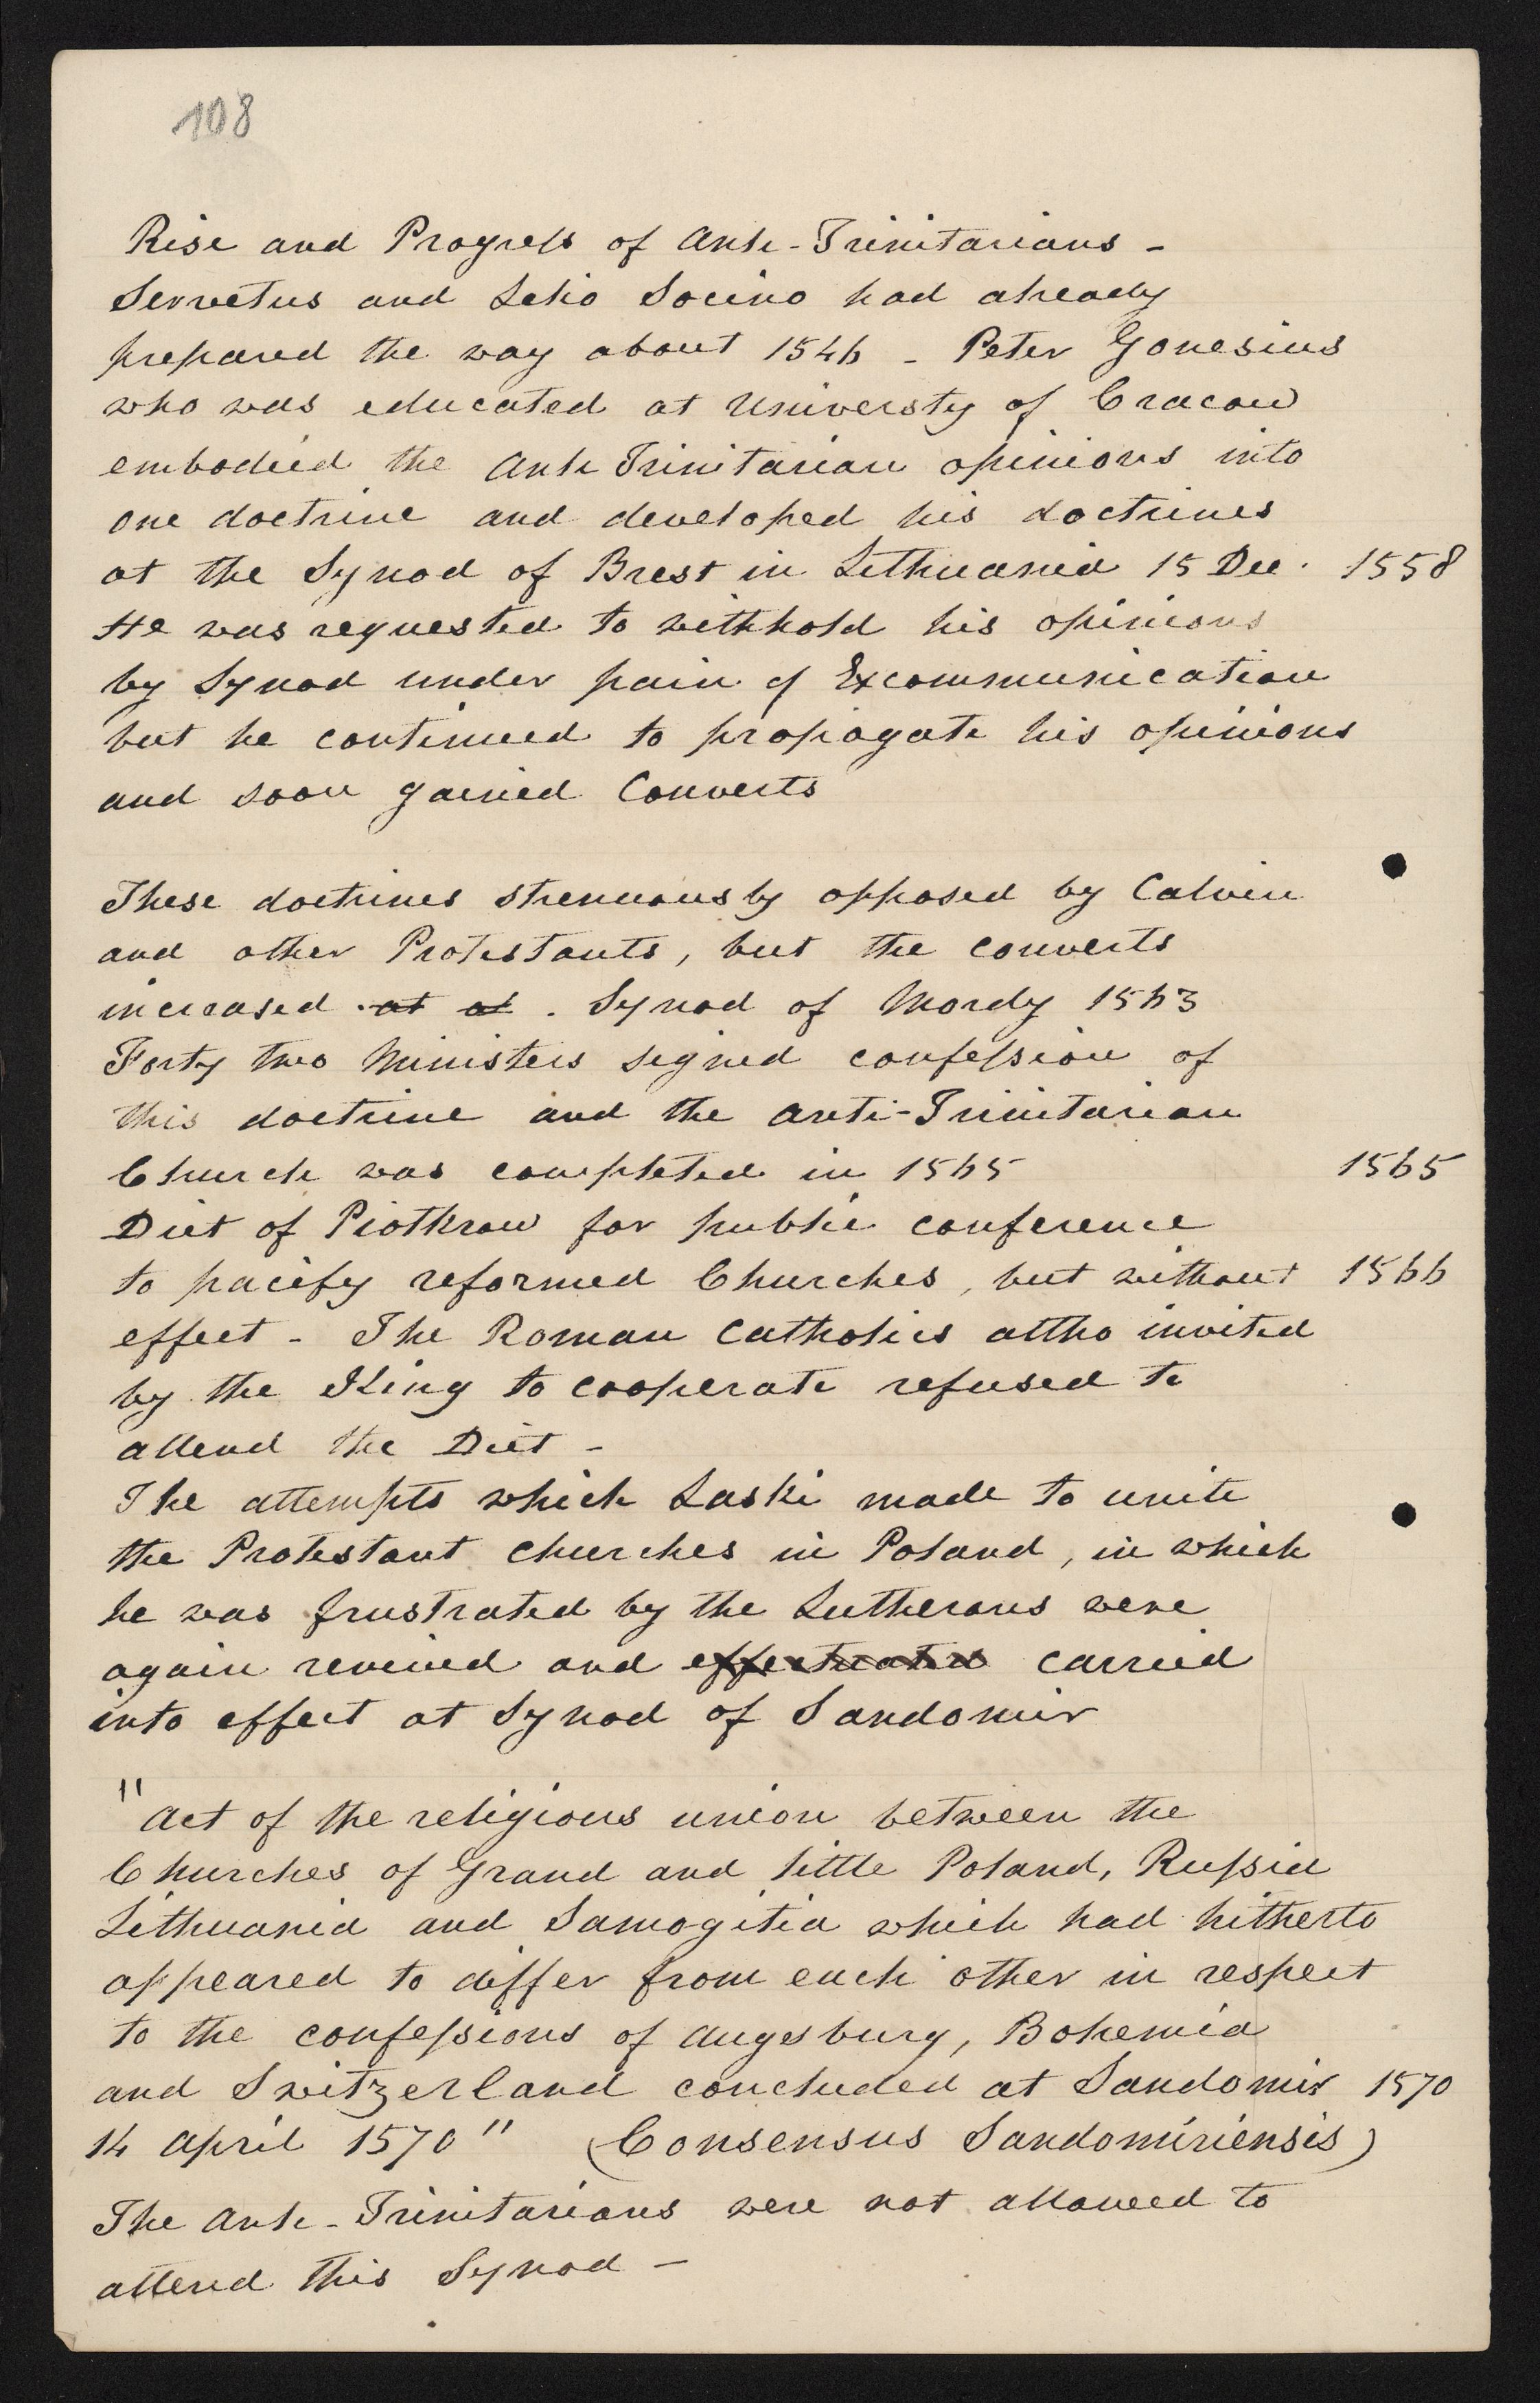 108
Rise and Progress of Anti-Trinitarians -
Servetus and Lelio Socino had already
prepared the way about 1546 - Peter Gonesius
who was educated at Universty of Cracow
embodied the Anti Trinitarian opinions into
one doctrine and developed his doctrines
at the Synod of Brest in Lithuania 15 Dec. 1558
He was requested to withhold his opinions
by Synod under pain of Excommunication
but he continued to propagate his opinions
and soon gained Converts
These doctrines strenuously opposed by Calvin
and other Protestants, but the converts
increased at at. Synod of Mordy 1563
Forty two Ministers signed confession of
this doctrine and the Anti-Trinitarian
Church was completed in 1565 1565
Diet of Piotkrow for public conference
to pacify reformed Churches, but without 1566
effect - The Roman Catholics altho invited
by the King to cooperate refused to
attend the Diet -
The attempts which Laski made to unite
the Protestant Churches in Poland, in which
he was frustrated by the Lutherans were
again revived and effectuated carried
into effect at Synod of Sandomir
"Act of the religious union between the
Churches of Grand and little Poland, Russia
Lithuania and Samogitia which had hitherto
appeared to differ from each other in respect
to the confessions of Augsburg, Bohemia
and Switzerland concluded at Sandomir 1570
14 April 1570" (Consensus Sandomiriensis)
The Anti-Trinitarians were not allowed to
attend this Synod -